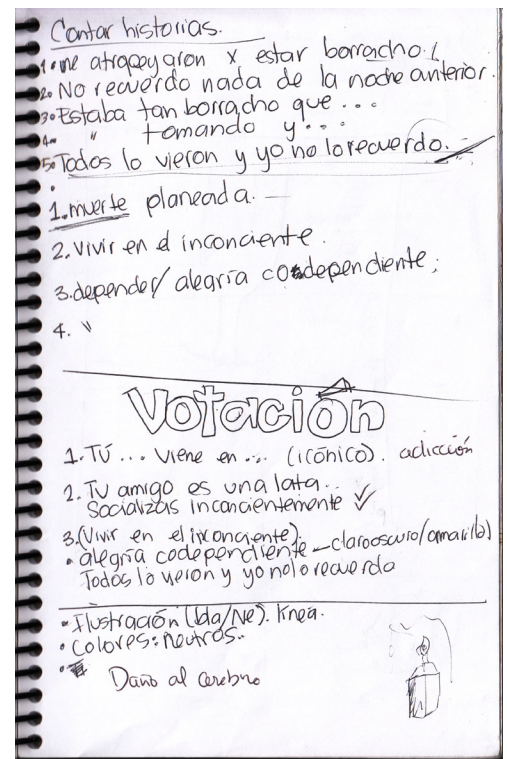 Contar historias.
1. me atropeyaron x estar borracho.
2. No recuerdo nada de la noche anterior.
3. Estaba tan borracho que ...
4. " tomando y ...
5. Todos lo vieron y yo no lo recuerdo.
1. muerte planeada.
2. Vivir en el inconciente.
3. depender/ alegría codependiente;
4. "
Votación
1. TÚ ... viene en ... (icónico). adicción
2. Tu amigo es una lata..
Socializas incancientemente ✓
3. (Vivir en el inconciente).
• alegría codependiente — claro oscuro/(amarillo)
Todos lo vieron y yo no lo recuerdo
• Ilustración (bla/Ne). línea.
• Colores: neutros..
Daño al cerebro